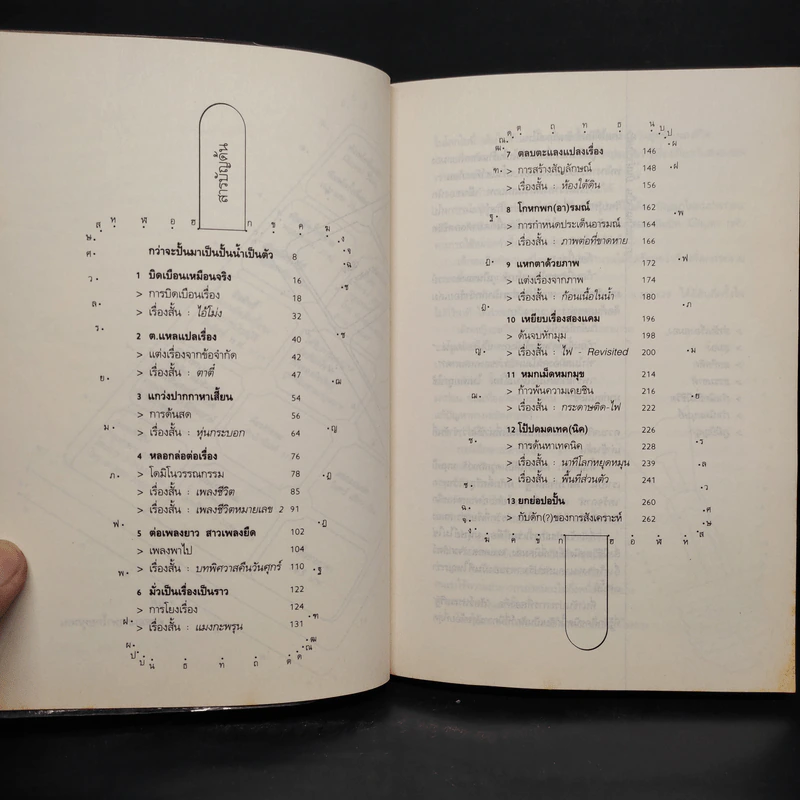 สารบัญดั้น
กว่าจะปั้นมาเป็นปั้นน้ำเป็นตัว 8
1 บิดเบือนเหมือนจริง 16
> การบิดเบือนเรื่อง 18
> เรื่องสั้น : ไอ้โม่ง 32
2 ต.แหลแปลเรื่อง 40
> แต่งเรื่องจากข้อจำกัด 42
> เรื่องสั้น : ตาตี่ 47
3 แกว่งปากกาหาเสี้ยน 54
> การด้นสด 56
> เรื่องสั้น : หุ่นกระบอก 64
4 หลอกล่อต่อเรื่อง 76
> โดมิโนวรรณกรรม 78
> เรื่องสั้น : เพลงชีวิต 85
> เรื่องสั้น : เพลงชีวิตหมายเลข 2 91
5 ต่อเพลงยาว สาวเพลงยืด 102
> เพลงพาไป 104
> เรื่องสั้น : บทพิศวาสคืนวันศุกร์ 110
6 มั่วเป็นเรื่องเป็นราว 122
> การโยงเรื่อง 124
> เรื่องสั้น : แมงกะพรุน 131
7 ตลบตะแลงแปลงเรื่อง 146
> การสร้างสัญลักษณ์ 148
> เรื่องสั้น : ห้องใต้ดิน 156
8 โกหกพก(อา)รมณ์ 162
> การกำหนดประเด็นอารมณ์ 164
> เรื่องสั้น : ภาพต่อที่ขาดหาย 166
9 แหกตาด้วยภาพ 172
> แต่งเรื่องจากภาพ 174
> เรื่องสั้น : ก้อนเนื้อในน้ำ 180
10 เหยียบเรื่องสองแคม 196
> ด้นจบหักมุม 198
> เรื่องสั้น : ไฟ - Revisited 200
11 หมกเม็ดหมกมุข 214
> ก้าวพ้นความเคยชิน 216
> เรื่องสั้น : กระดาษติด-ไฟ 222
12 โป้ปดมดเทค(นิค) 226
> การค้นหาเทคนิค 228
> เรื่องสั้น : นาทีโลกหยุดหมุน 239
> เรื่องสั้น : พื้นที่ส่วนตัว 241
13 ยกย่อปอปั้น 260
> กับดัก(?)ของการสังเคราะห์ 262